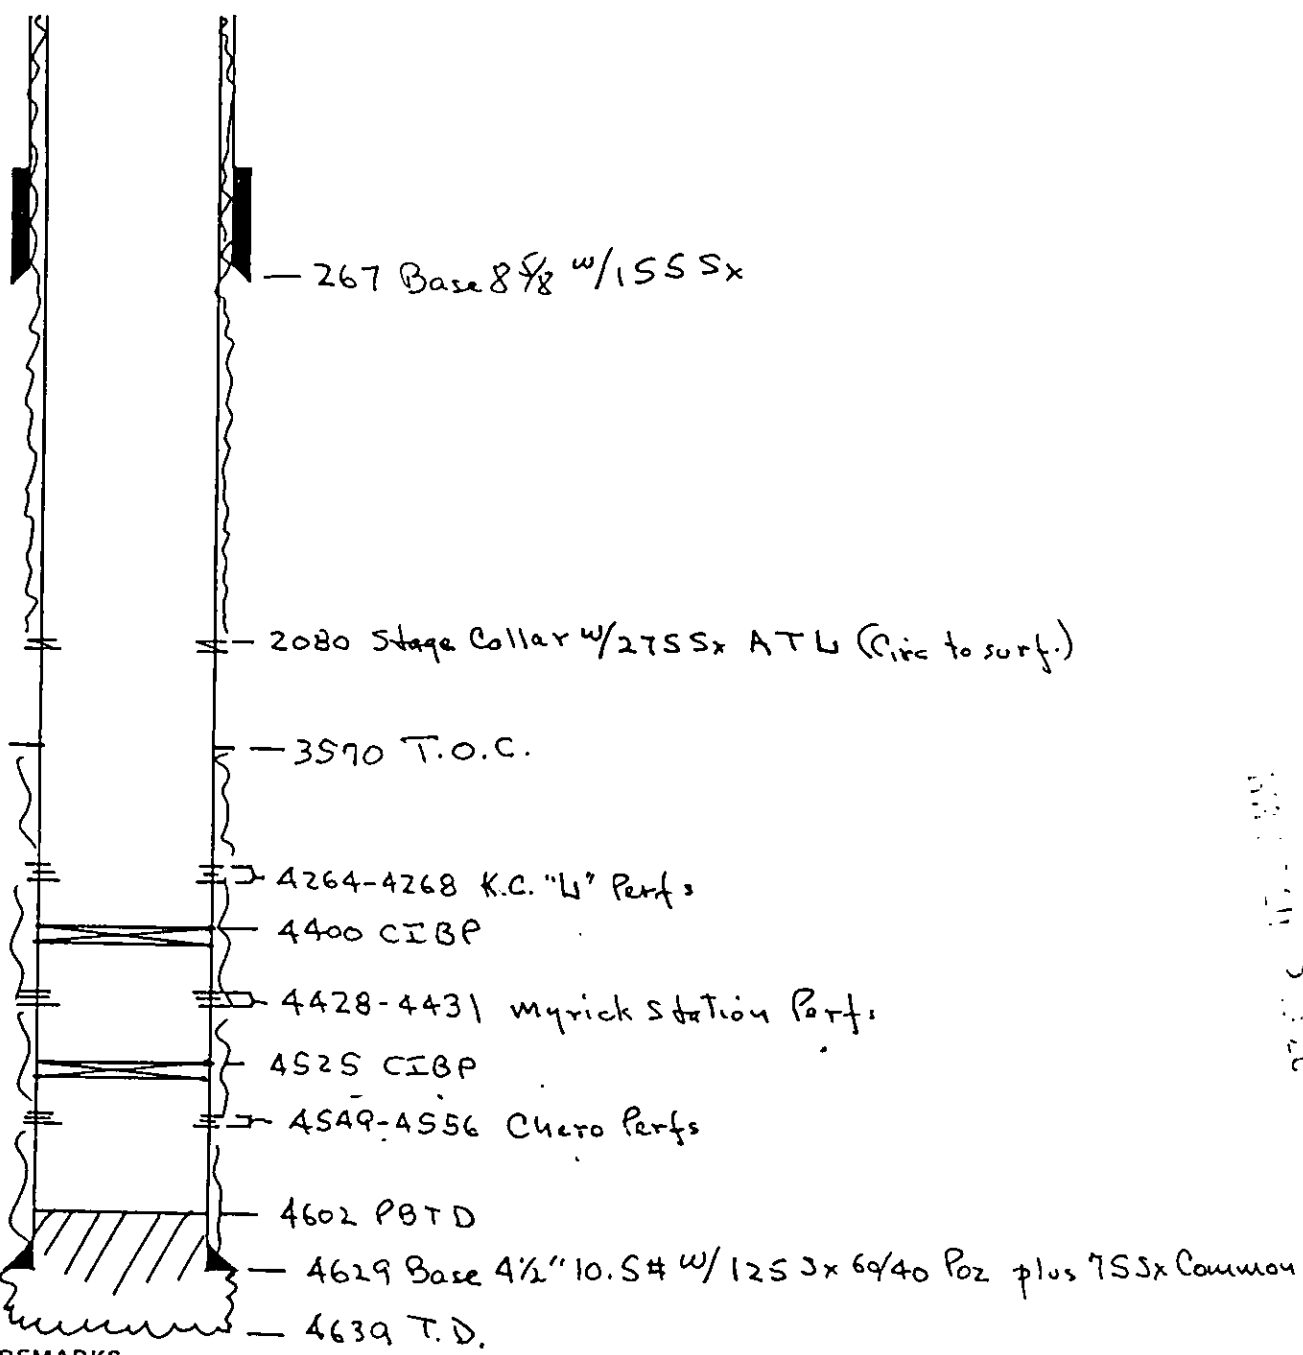 — 267 Base 8 5/8 w/155 Sx
— 2080 Stage Collar w/275 Sx ATL (Circ to surf.)
— 3570 T.O.C.
4264-4268 K.C. "L" Perfs
— 4400 CIBP
4428-4431 Myrick Station Perfs
— 4525 CIBP
4549-4556 Chero Perfs
— 4602 PBTD
— 4629 Base 4½" 10.5# w/ 125 Sx 60/40 Poz plus 75 Sx Common
— 4639 T.D.
REMARKS